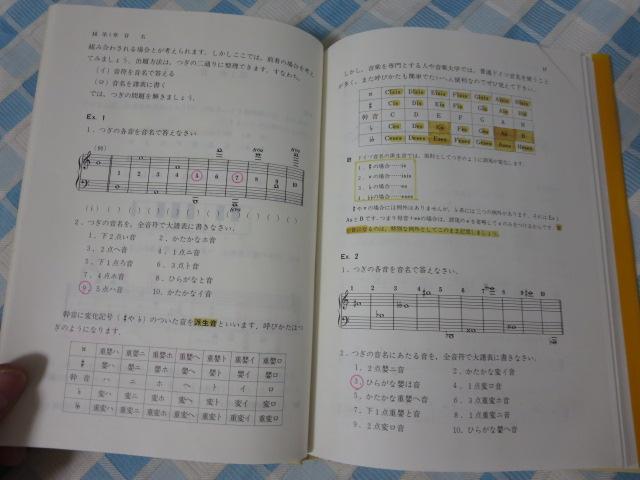 16 第1章 音 名
組み合わされる場合とが考えられます。しかしここでは、前者の場合を考え
てみましょう。出題方法は、つぎの二通りに整理できます。すなわち、
(イ) 音符を音名で答える
(ロ) 音名を譜表に書く
では、つぎの問題を解きましょう。
Ex. 1
1. つぎの各音を音名で答えなさい
(例) 1 2 3 4 5 6 7 8 9 10
2. つぎの音名を、全音符で大譜表に書きなさい。
1. 下2点い音 2. かたかなホ音
3. 2点ヘ音 4. 1点ニ音
5. 下1点ろ音 6. 3点ト音
7. 4点ホ音 8. ひらがなと音
9. 3点ハ音 10. かたかなイ音
幹音に変化記号(♯や♭)のついた音を派生音といいます。呼びかたはつ
ぎのようになります。
𝄪 重嬰ハ 重嬰ニ 重嬰ホ 重嬰ヘ 重嬰ト 重嬰イ 重嬰ロ
♯ 嬰ハ 嬰ニ 嬰ホ 嬰ヘ 嬰ト 嬰イ 嬰ロ
幹音 ハ ニ ホ ヘ ト イ ロ
♭ 変ハ 変ニ 変ホ 変ヘ 変ト 変イ 変ロ
♭♭ 重変ハ 重変ニ 重変ホ 重変ヘ 重変ト 重変イ 重変ロ
17
しかし、音楽を専門とする人や音楽大学では、普通ドイツ音名を使うこと
が多く、また呼びかたも簡単でたいへん便利なのでぜひ覚えて下さい。
𝄪 Cisis Disis Eisis Fisis Gisis Aisis Hisis
♯ Cis Dis Eis Fis Gis Ais His
幹音 C D E F G A H
♭ Ces Des Es Fes Ges As B
♭♭ Ceses Deses Eses Feses Geses
注 ドイツ音名の派生音では、原則としてつぎのように語尾が変化します。
1. ♯の場合……is
2. 𝄪の場合……isis
3. ♭の場合……es
4. ♭♭の場合……eses
Ex. 2
1. つぎの各音を音名で答えなさい。
1 2 3 4 5 6 7 8 9 10
2. つぎの音名にあたる音を、全音符で大譜表に書きなさい。
1. 2点嬰ニ音 2. かたかな変イ音
3. ひらがな嬰は音 4. 1点変ロ音
5. かたかな重嬰ヘ音 6. 3点重変ホ音
7. 下1点重嬰と音 8. 1点重変ニ音
9. 2点変ロ音 10. ひらがな嬰へ音